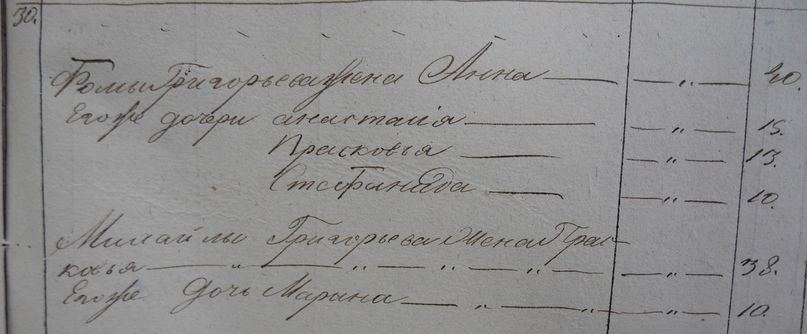 30.
Фомы Григорьева жена Анна — „ — 40.
Егоже дочери анастасія — „ — 15.
Прасковья — „ — 13.
Стефанида — „ — 10.
Михайлы Григорьева жена Прас-
ковья — „ — „ — „ — „ — 38.
Егоже дочь Марина — „ — „ — 10.